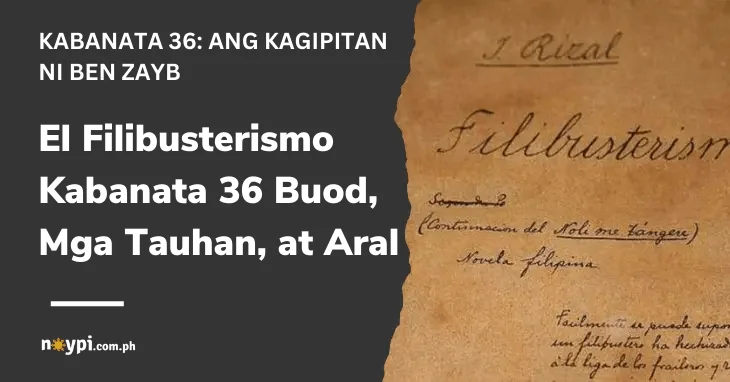 KABANATA 36: ANG KAGIPITAN
NI BEN ZAYB
El Filibusterismo
Kabanata 36 Buod,
Mga Tauhan, at Aral
noypi.com.ph
J. Rizal
Filibusterism
(Continuacion del Noli me tángere)
Novela filipina
Facilmente se puede supon
un filibustero ha hechizad
á la liga de los frailes y r